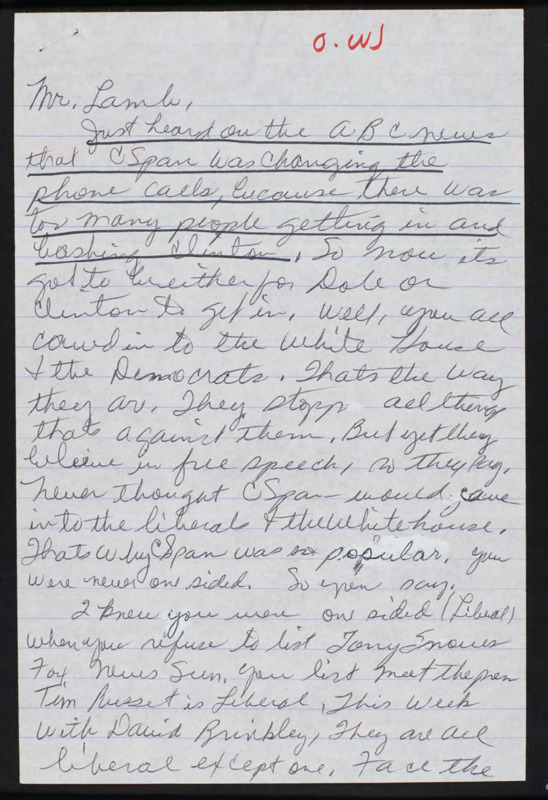 O.WJ
Mr. Lamb,
Just heard on the ABC news
that CSpan was changing the
phone calls, because there was
too many people getting in and
bashing Clinton. So now its
got to be either for Dole or
Clinton to get in, Well, you all
caved in to the White House
& the Democrats. Thats the way
they are. They stopp all things
thats against them. But yet they
believe in free speech, so they say.
Never thought CSpan would cave
in to the liberals & the Whitehouse.
Thats why CSpan was so popular, you
were never one sided. So you say.
I knew you were one sided (Liberal)
when you refuse to list Tony Snows
Fox News Sun, you list meet the pren
Tim Russet is Liberal, This Week
With David Brinkley, They are all
liberal except one, Face the